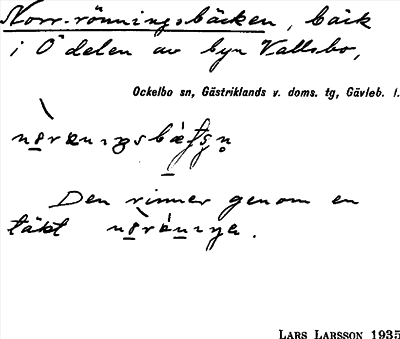 Norr-rönningsbäcken, bäck
i Ö delen av byn Vallsbo,
Ockelbo sn, Gästriklands v. doms. tg, Gävleb. l.
Den rinner genom en
täkt
LARS LARSSON 1935